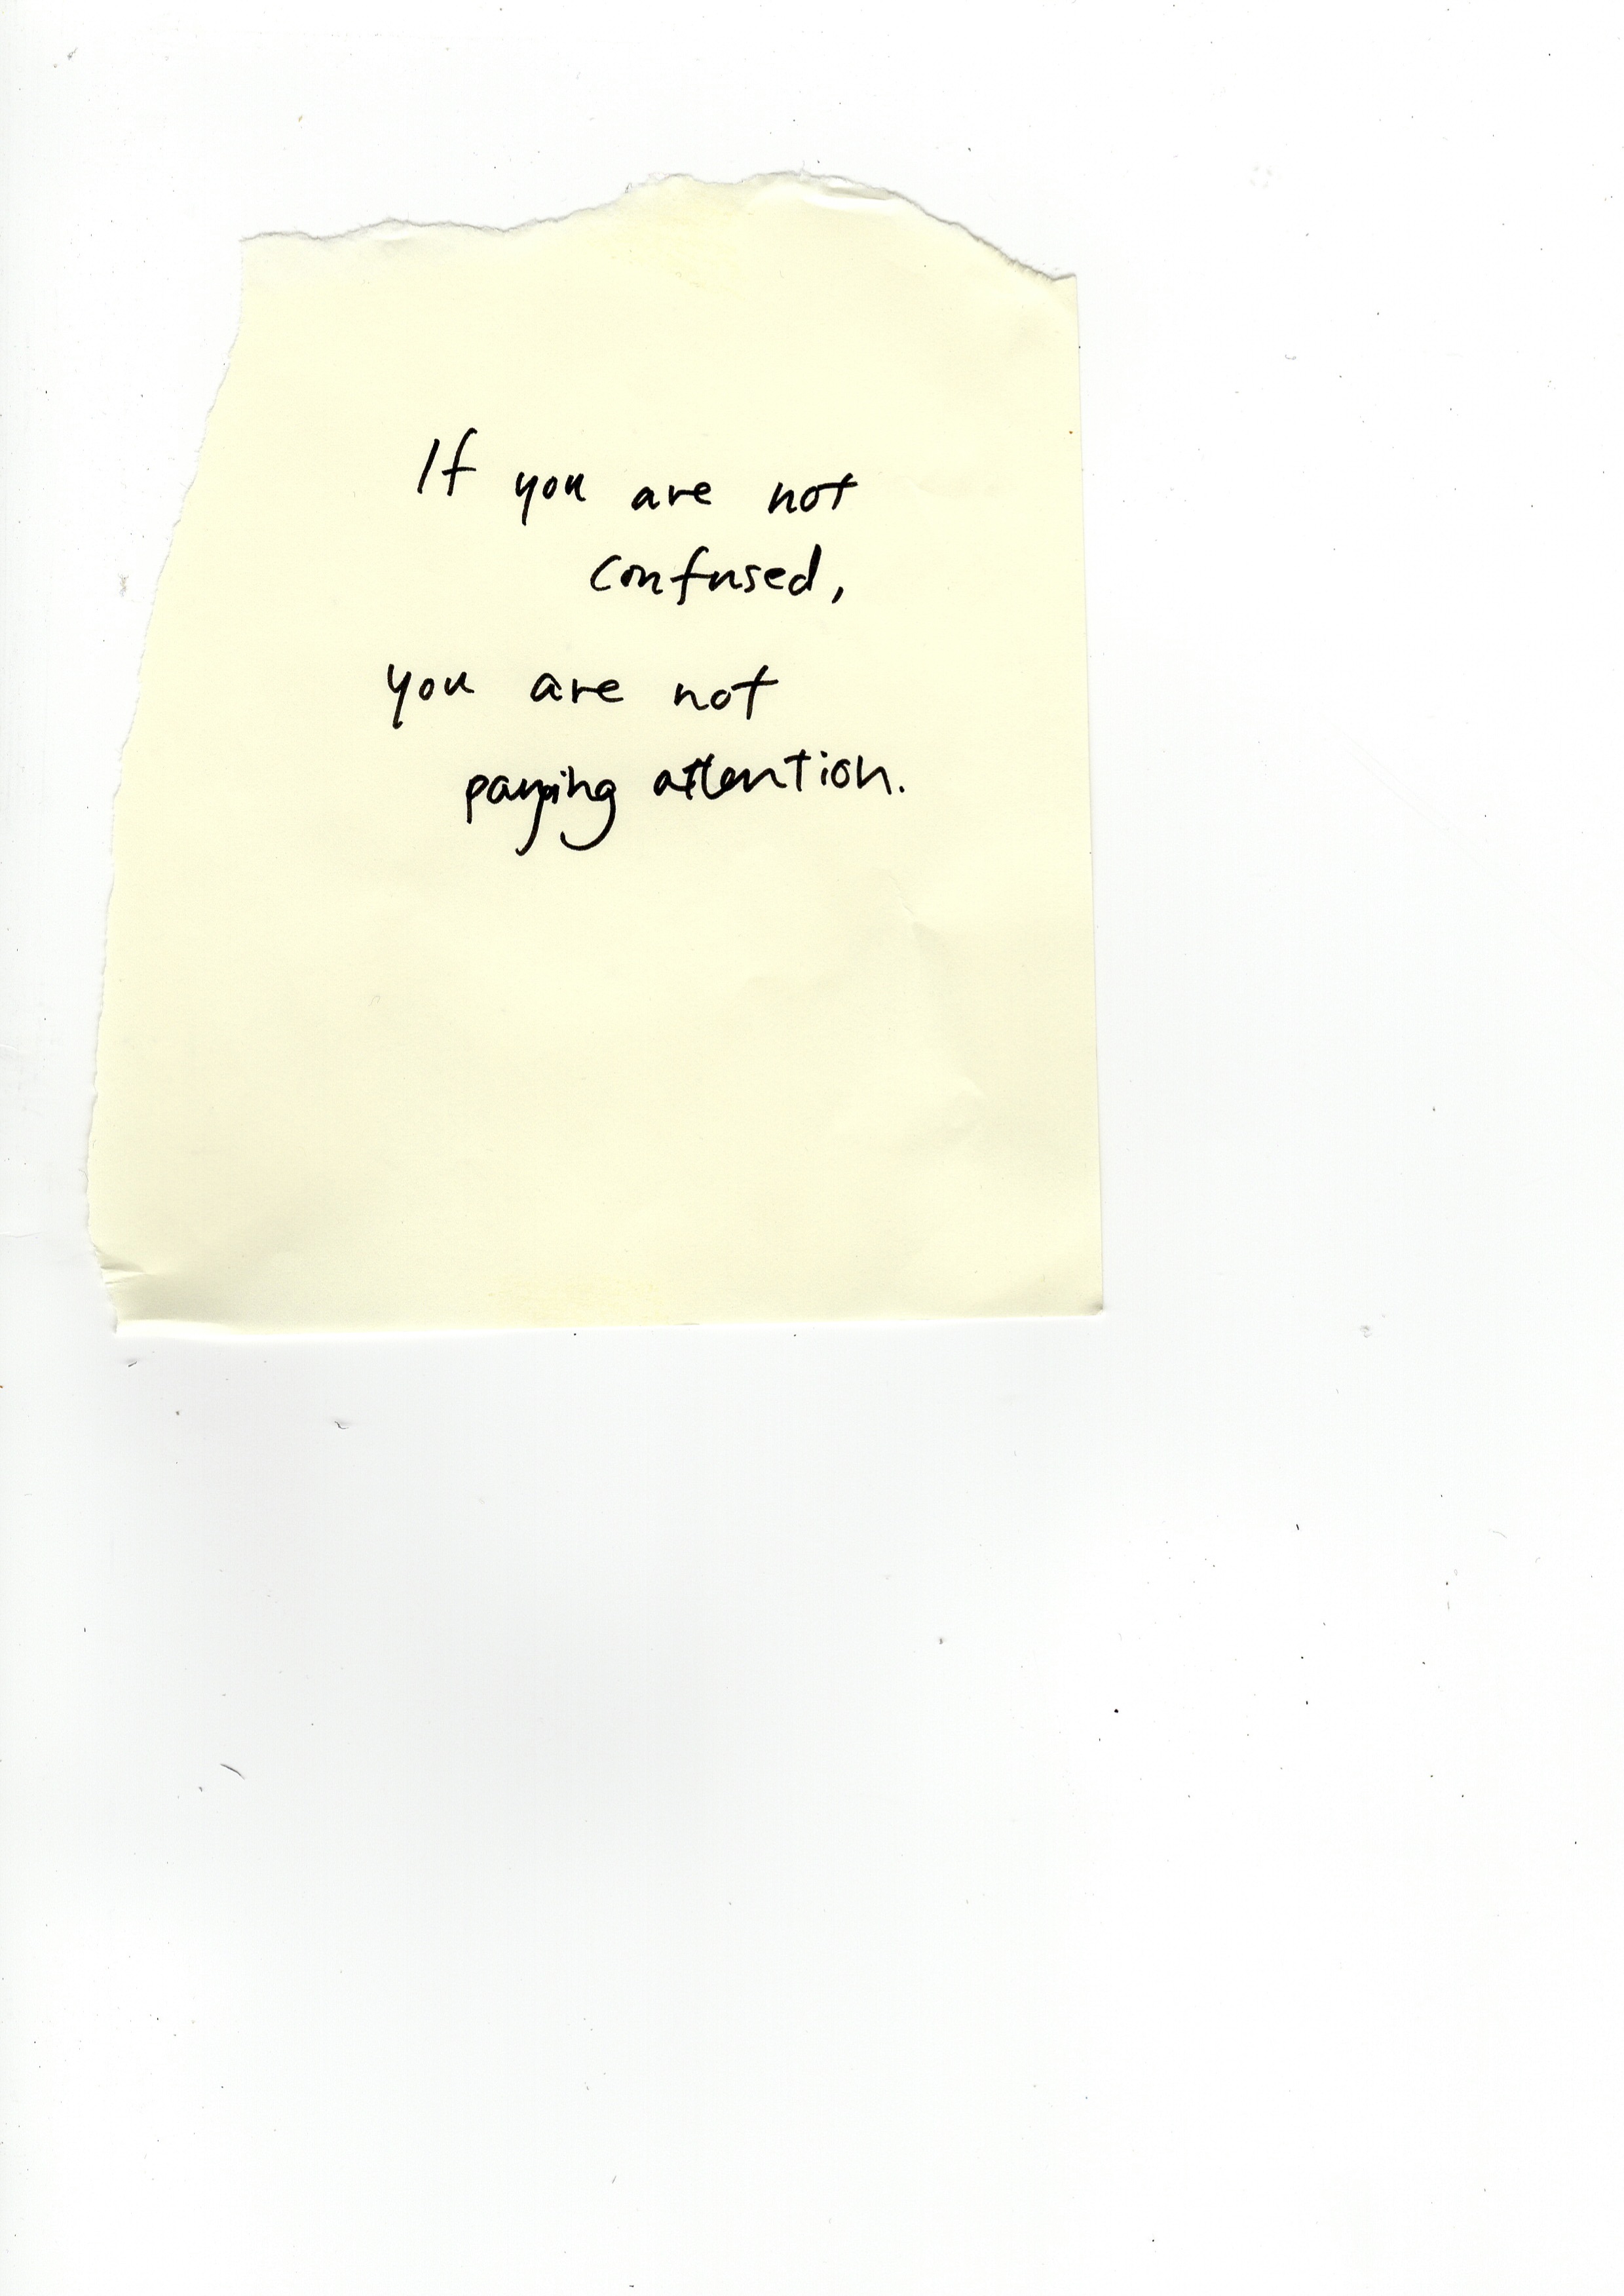 If you are not
confused,
you are not
paying attention.